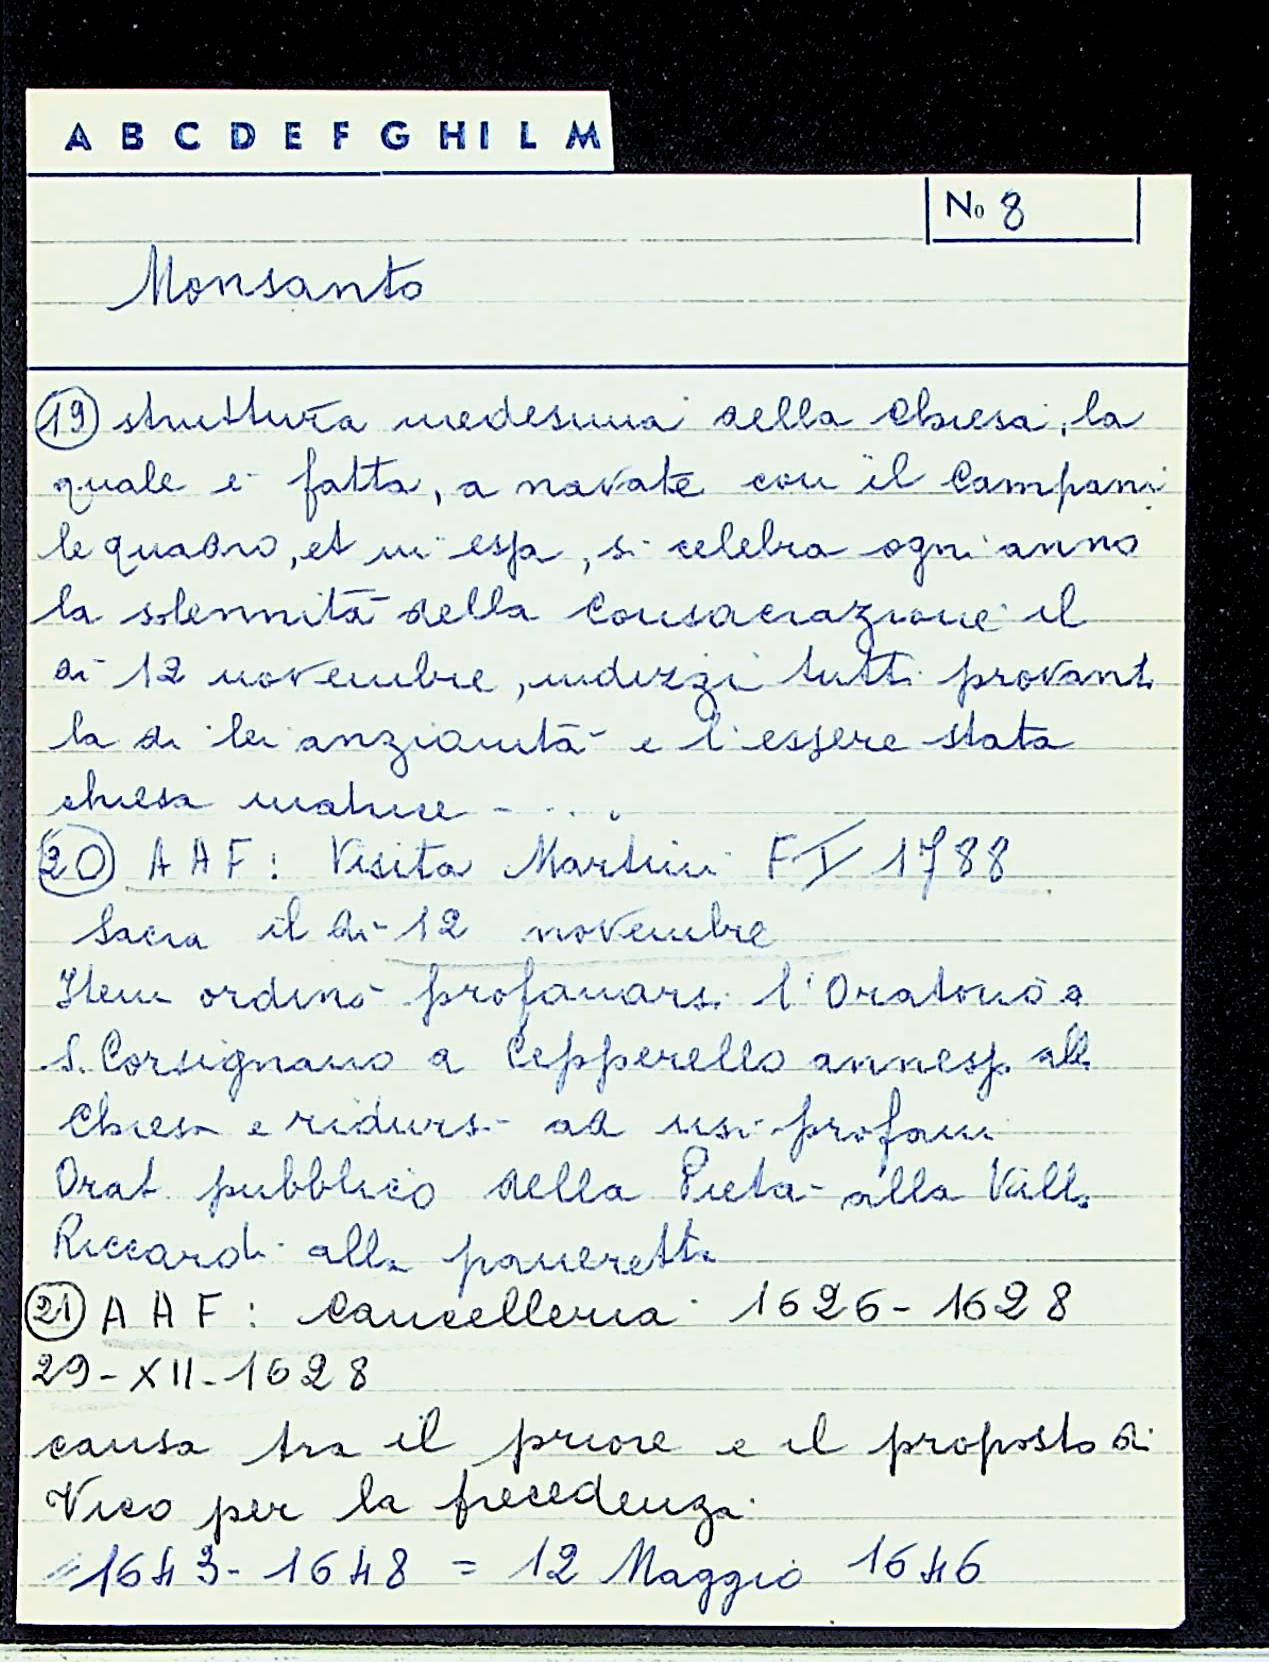 A B C D E F G H I L M
No 8
Monsanto
19 struttura medesima della Chiesa, la
quale è fatta, a navate con il Campani
le quadro, et in essa, si celebra ogni anno
la solennità della Consacrazione il
dì 12 novembre, indizzi tutti provanti
la di lei anzianità e l'essere stata
chiesa matrice - . . .
20 AAF: Visita Martini F I 1788
Sacra il dì 12 novembre
Item ordinò profanarsi l'Oratorio
S. Corsignano a Cepperello annesso alla
Chiesa e ridursi ad usi profani
Orat. pubblico della Pietà alla Villa
Riccardi alla paneretta
21 AAF: Cancelleria 1626-1628
29-XII-1628
causa tra il priore e il proposto di
Vico per la precedenza
1643-1648 = 12 Maggio 1646